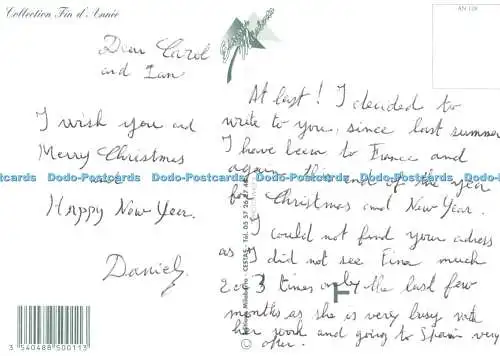 Collection Fin d'Année
AN 128
Dear Carol
and Ian
I wish you and
Merry Christmas
and
Happy New Year.
Daniel
At last! I decided to
write to you, since last summer
I have been to France and
again this end of the year
for Christmas and New Year.
I could not find your adress
as I did not see Fina much
2 or 3 times only the last few
months as she is very busy with
her work and going to Spain very
often.
Dodo-Postcards Dodo-Postcards Dodo-Postcards Dodo-Postcards Dodo-Postcards Dodo-Postcards
CESTAS - Tél. 05 57 26
3 540488 500113